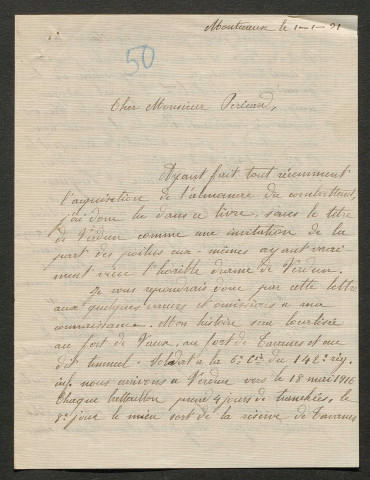 Montceaux le 1-1-31
50
Cher Monsieur Péricard,
Ayant fait tout récemment
l'aquisition de l'almanac du combattant,
j'ai donc lu dans ce livre, sous le titre
de Verdun comme une invitation de la
part des poilus eux-mêmes ayant vrai-
ment vécu l'horible drame de Verdun.
Je vous repondrais donc par cette lettre
aux quelques erreurs et omissions a ma
connaissance. Mon histoire sera localisée
au fort de Vaux, au fort de Tavanes et au
dit tunnel. Soldat a la 6e Cie du 142e reg.
inf. nous arrivons a Verdun vers le 18 mai 1916
Chaque battaillon prend 4 jours de tranchées, le
8e jour le mien sort de la réserve de Tavanes